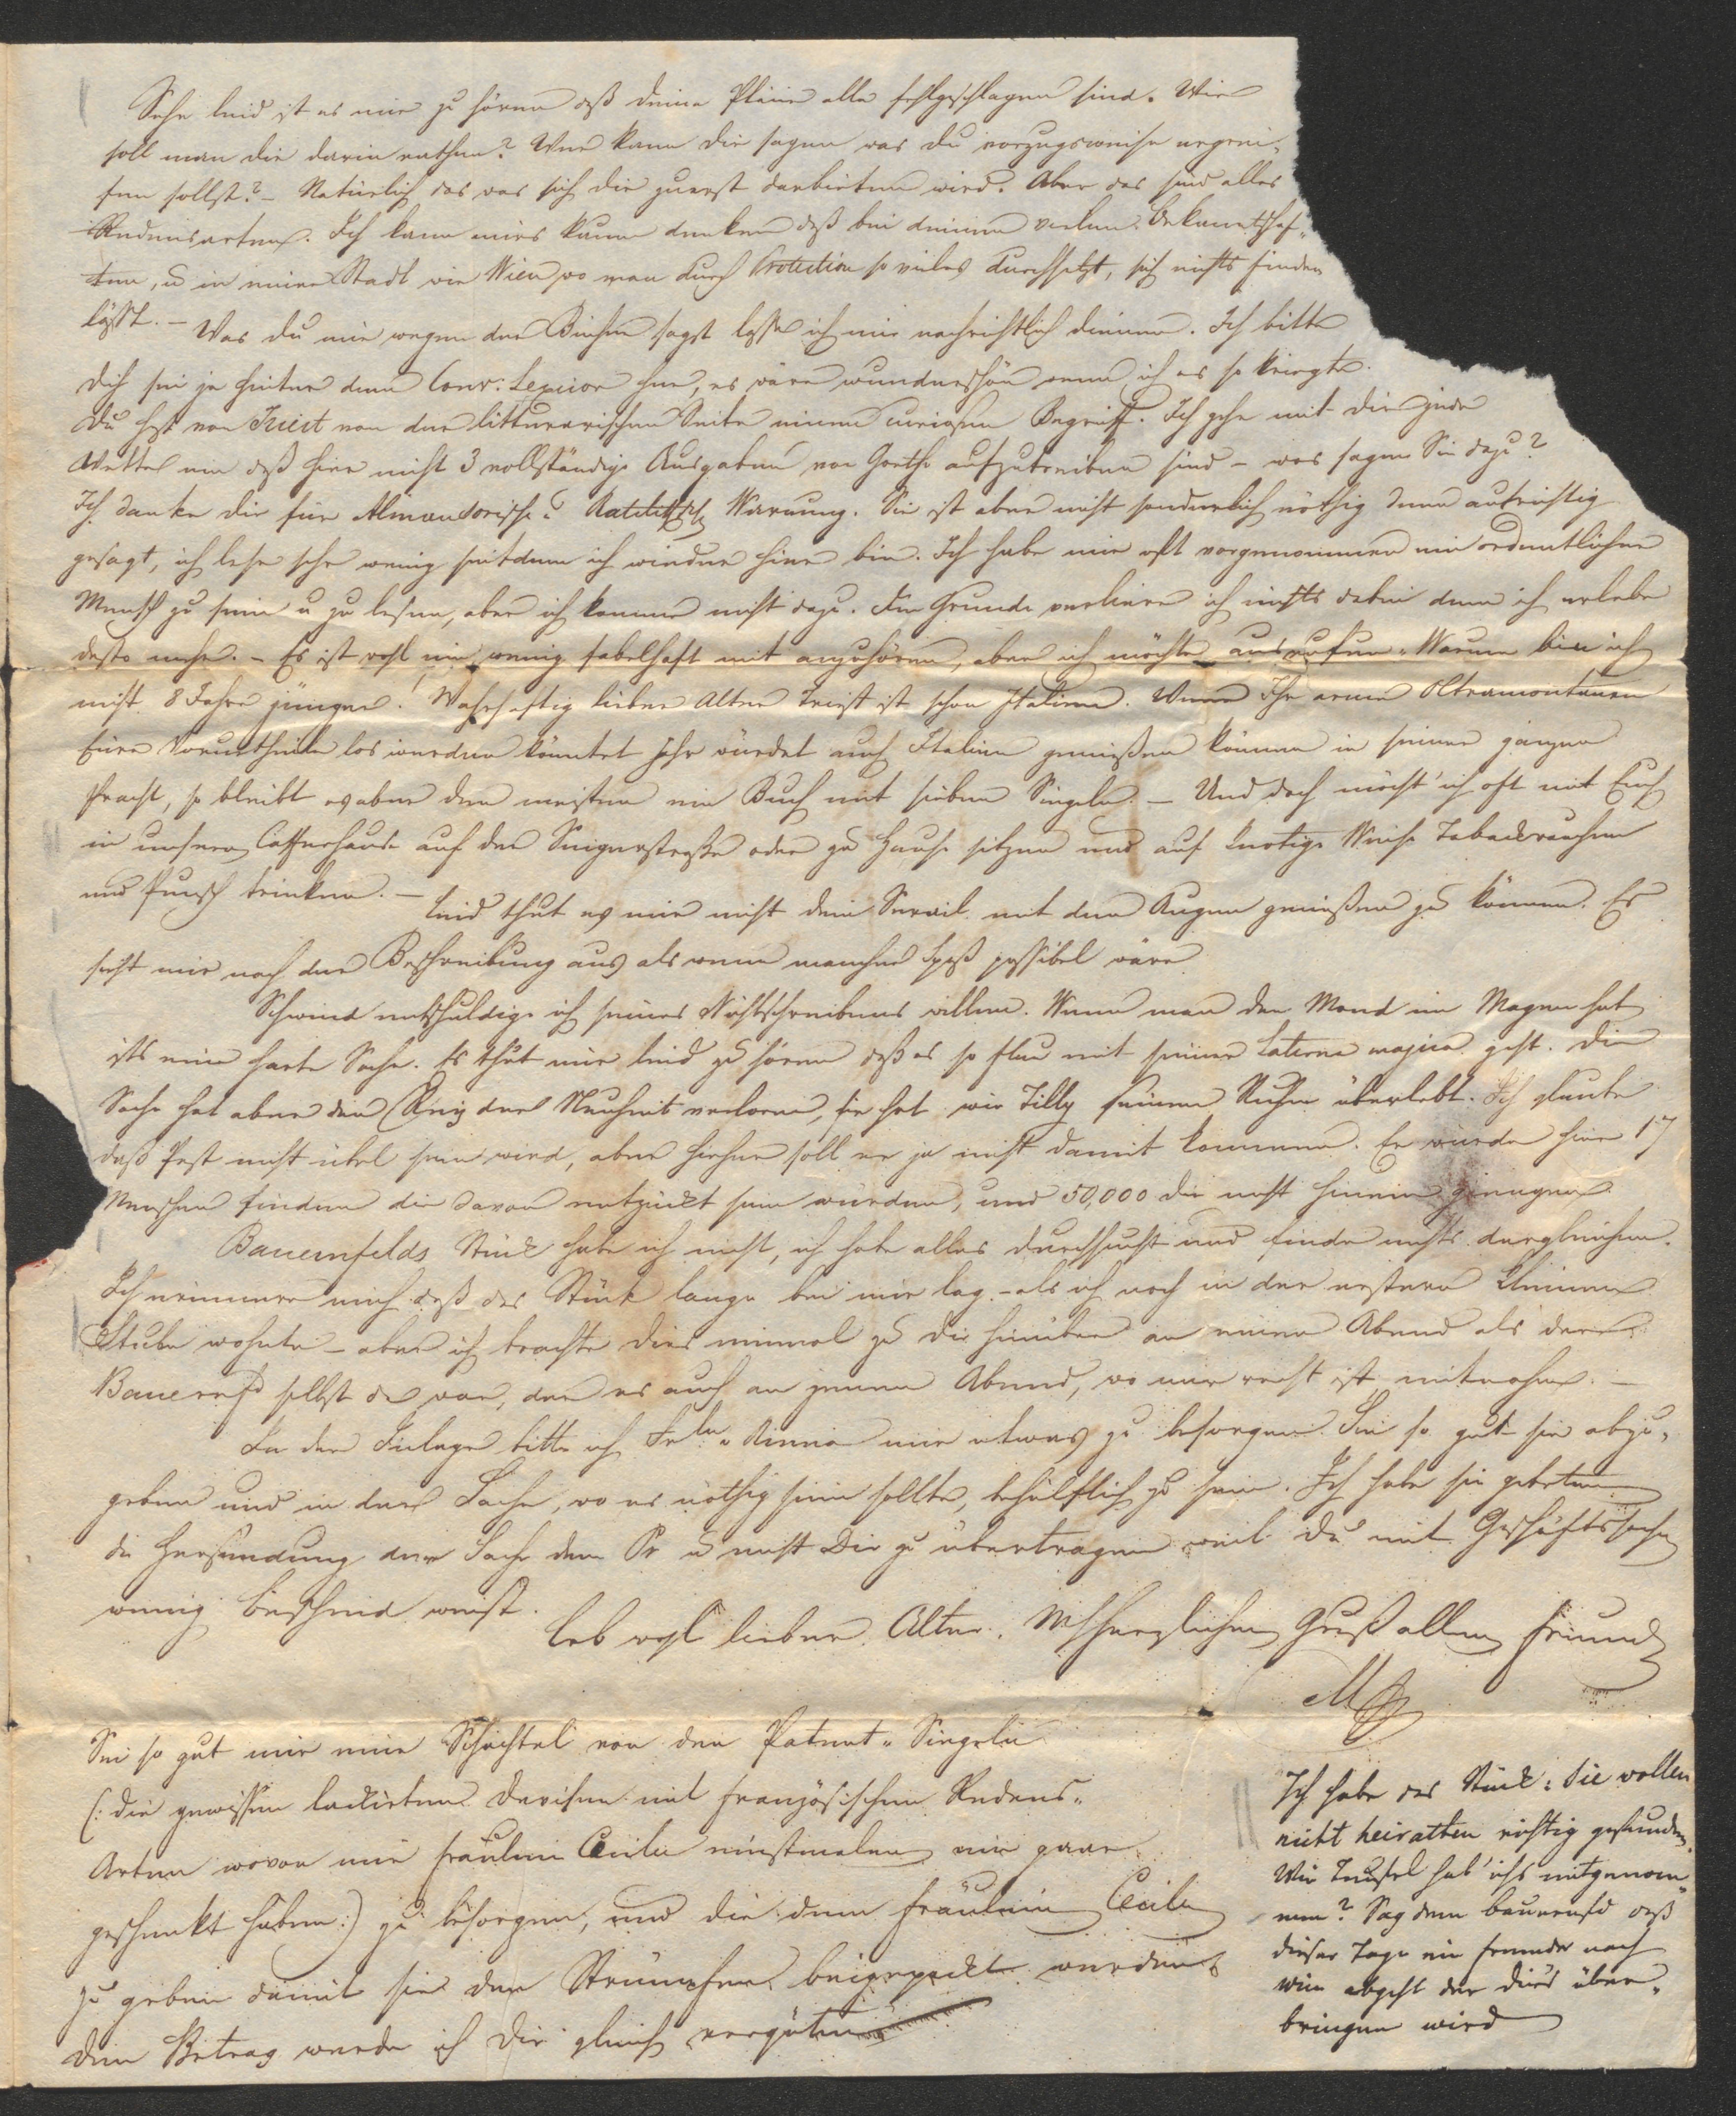 Sehr leid ist es mir zu hören daß deine Pläne alle fehlgeschlagen sind. Wie
soll man dir darin rathen? Wer kann dir sagen was du vorzugsweise ergrei-
fen sollst? – Natürlich das was sich dir zuerst darbieten wird. Aber das sind alles
Redensarten. Ich kann mirs kaum denken daß bei deinen vielen Bekanntschaf-
ten, u in einer Stadt wie Wien wo man durch Protection so vieles durchsetzt, sich nichts finden
läßt. – Was du mir wegen der Bücher sagst lasse ich mir nachrichtlich dienen. Ich bitte
dich sei ja hinter dem Conv: Lexicon her, es wäre wunderschön wenn ich es so kriegte.
Du hast von Triest von der litterarischen Seite einen curiosen Begriff. Ich gehe mit dir jede
Wette ein daß hier nicht 3 vollständige Ausgaben von Goethe aufzutreiben sind – was sagen Sie dazu?
Ich danke dir für Almandorische Warnung. Sie ist aber nicht sonderlich nöthig denn aufrichtig
gesagt, ich lese sehr wenig seitdem ich wieder hier bin. Ich habe mir oft vorgenommen ein ordentlicher
Mensch zu sein u zu lesen, aber ich komme nicht dazu. Im Grunde verliere ich nichts dabei denn ich erlebe
desto mehr. – Es ist wohl ein wenig fabelhaft mit anzuhören, aber ich möchte ausrufen „Warum bin ich
nicht 8 Jahre jünger! Wahrhaftig lieber Alter Triest ist schon Italien. Wenn Ihr arme Oltramontanen
Eure Vorurtheile los werden könntet Ihr würdet auch Italien genießen können in seiner ganzen
Pracht, so bleibt es aber den meisten ein Buch mit sieben Siegeln. – Und doch möcht' ich oft mit Euch
in unserm Caffeehause auf der Singerstraße oder zu Hause sitzen und auf knotige Weise Tabackrauchen
und Punsch trinken. – Leid thut es mir nicht dein Serail mit den Augen genießen zu können. Es
sieht mir nach der Beschreibung aus als wenn mancher Spaß possibel wäre
Schwind entschuldige ich seines Nichtschreibens willen. Wenn man den Mond im Magen hat
ists eine harte Sache. Es thut mir leid zu hören daß es so flau mit seiner Laterna magica geht. Die
Sache hat aber den Reiz der Neuheit verloren, sie hat wie Tilly seinen Ruhm überlebt. Ich glaube
daß Pest nicht übel sein wird, aber hieher soll er ja nicht damit kommen. Er würde hier 17
Menschen finden die davon entzückt sein würden, und 50,000 die nicht hinein giengen.
Bauernfelds Stück habe ich nicht, ich habe alles durchsucht und finde nichts dergleichen.
Ich erinnere mich daß das Stück lange bei mir lag – als ich noch in der ersteren kleinen
Stube wohnte – aber ich brachte dies einmal zu dir hinüber an einem Abend als der
Bauernfd selbst da war, der es auch an jenem Abend, wo mir recht ist mitnahm. –
In der Einlage bitte ich Frln. Annia mir etwas zu besorgen. Sei so gut sie abzu-
geben und in der Sache, wo es nöthig sein sollte, behülflich zu sein. Ich habe sie gebeten
die Hersendung der Sache dem Pr u nicht Dir zu übertragen weil Du mit Geschäftssachen
wenig bescheid weist.
Leb wohl lieber Alter. Herzlichen Gruß allen Freunden
Sei so gut mir eine Schachtel von den Patent-Siegeln
(: die gewissen lackirten Devisen mit französischen Redens-
Arten wovon mir Fräulein Cecilie einstmalen ein paar
geschenkt haben:) zu besorgen, und die dem Fräulein Cecilie
zu geben damit sie den Strümpfen beigepackt werden.
Den Betrag werde ich dir gleich vergüten
Ich habe das Stück: Sie wollen
nicht heiratten richtig gefunden.
Wie Teufel hab' ichs mitgenom-
men? Sag dem Bauernfd daß
dieser Tage ein Fremder nach
Wien abgeht der dies über-
bringen wird